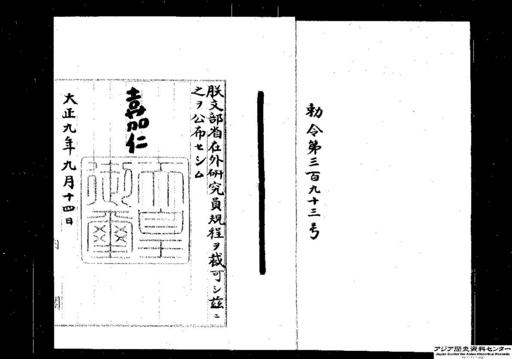 勅令第三百九十三号
朕文部省在外研究員規程ヲ裁可シ茲ニ
之ヲ公布セシム
嘉仁
天皇御璽
大正九年九月十四日
アジア歴史資料センター
Japan Center for Asian Historical Records